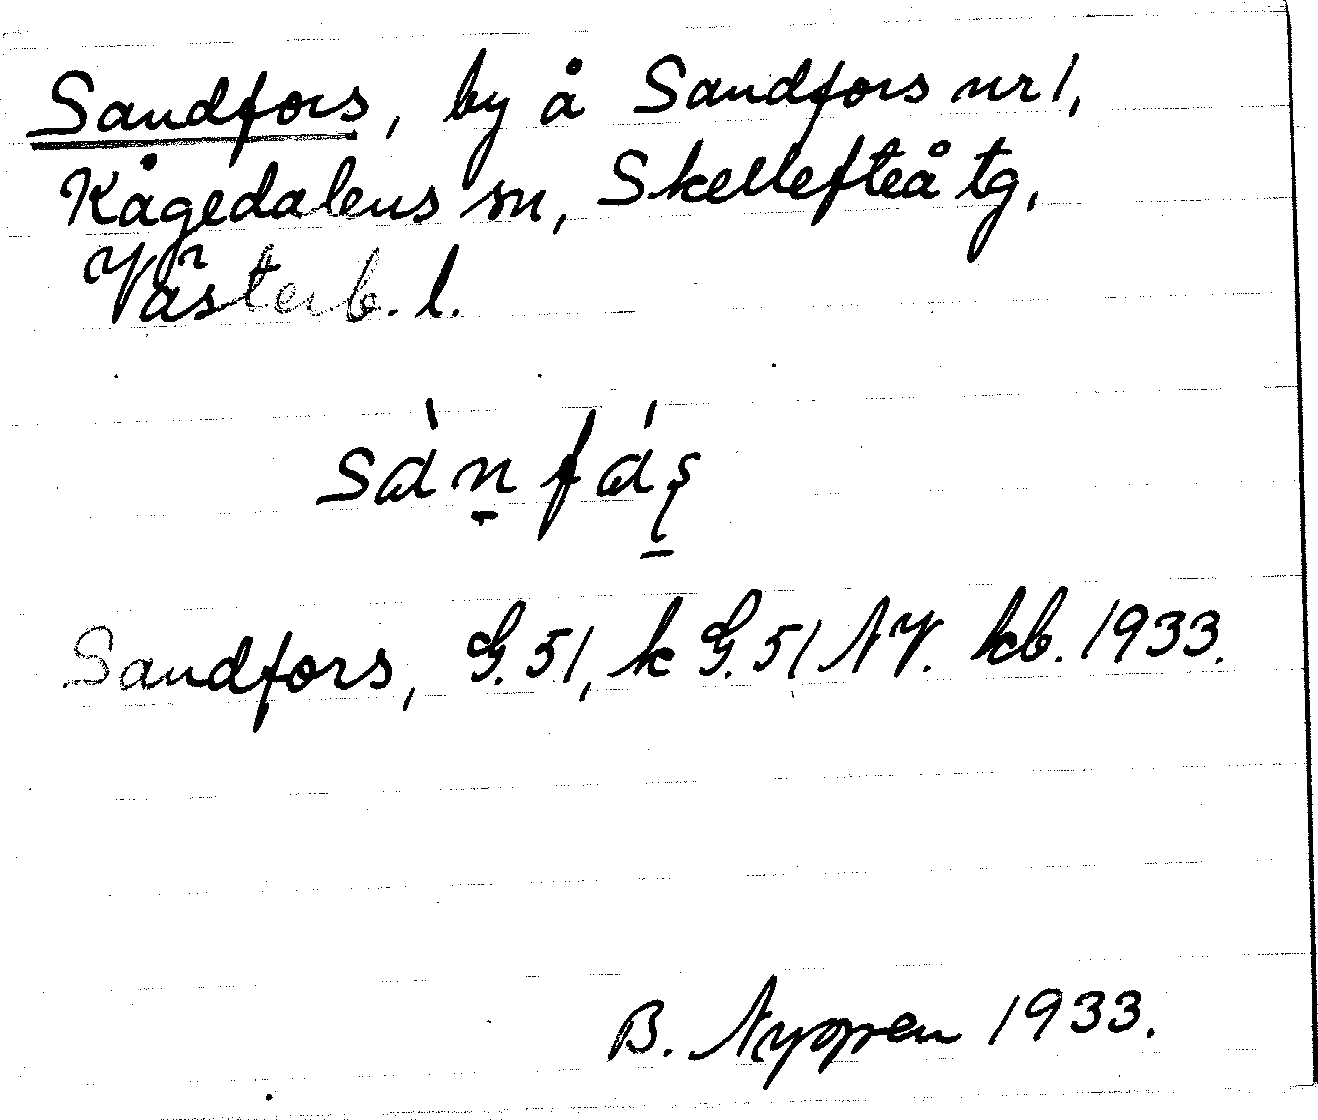 Sandfors, by å Sandfors nr 1,
Kågedalens sn, Skellefteå tg,
Västerb. l.
sàn̠fáş̠
Sandfors, G. 51, k G. 51 NV. kb. 1933.
B. Nyppen 1933.